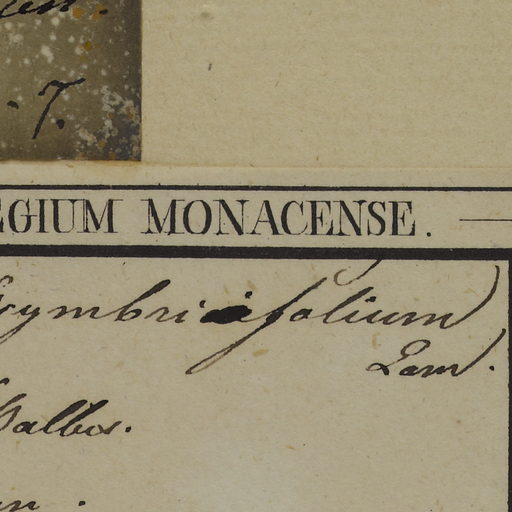 · 7.
EGIUM MONACENSE.
cymbriifolium
Lam.
Balbis.